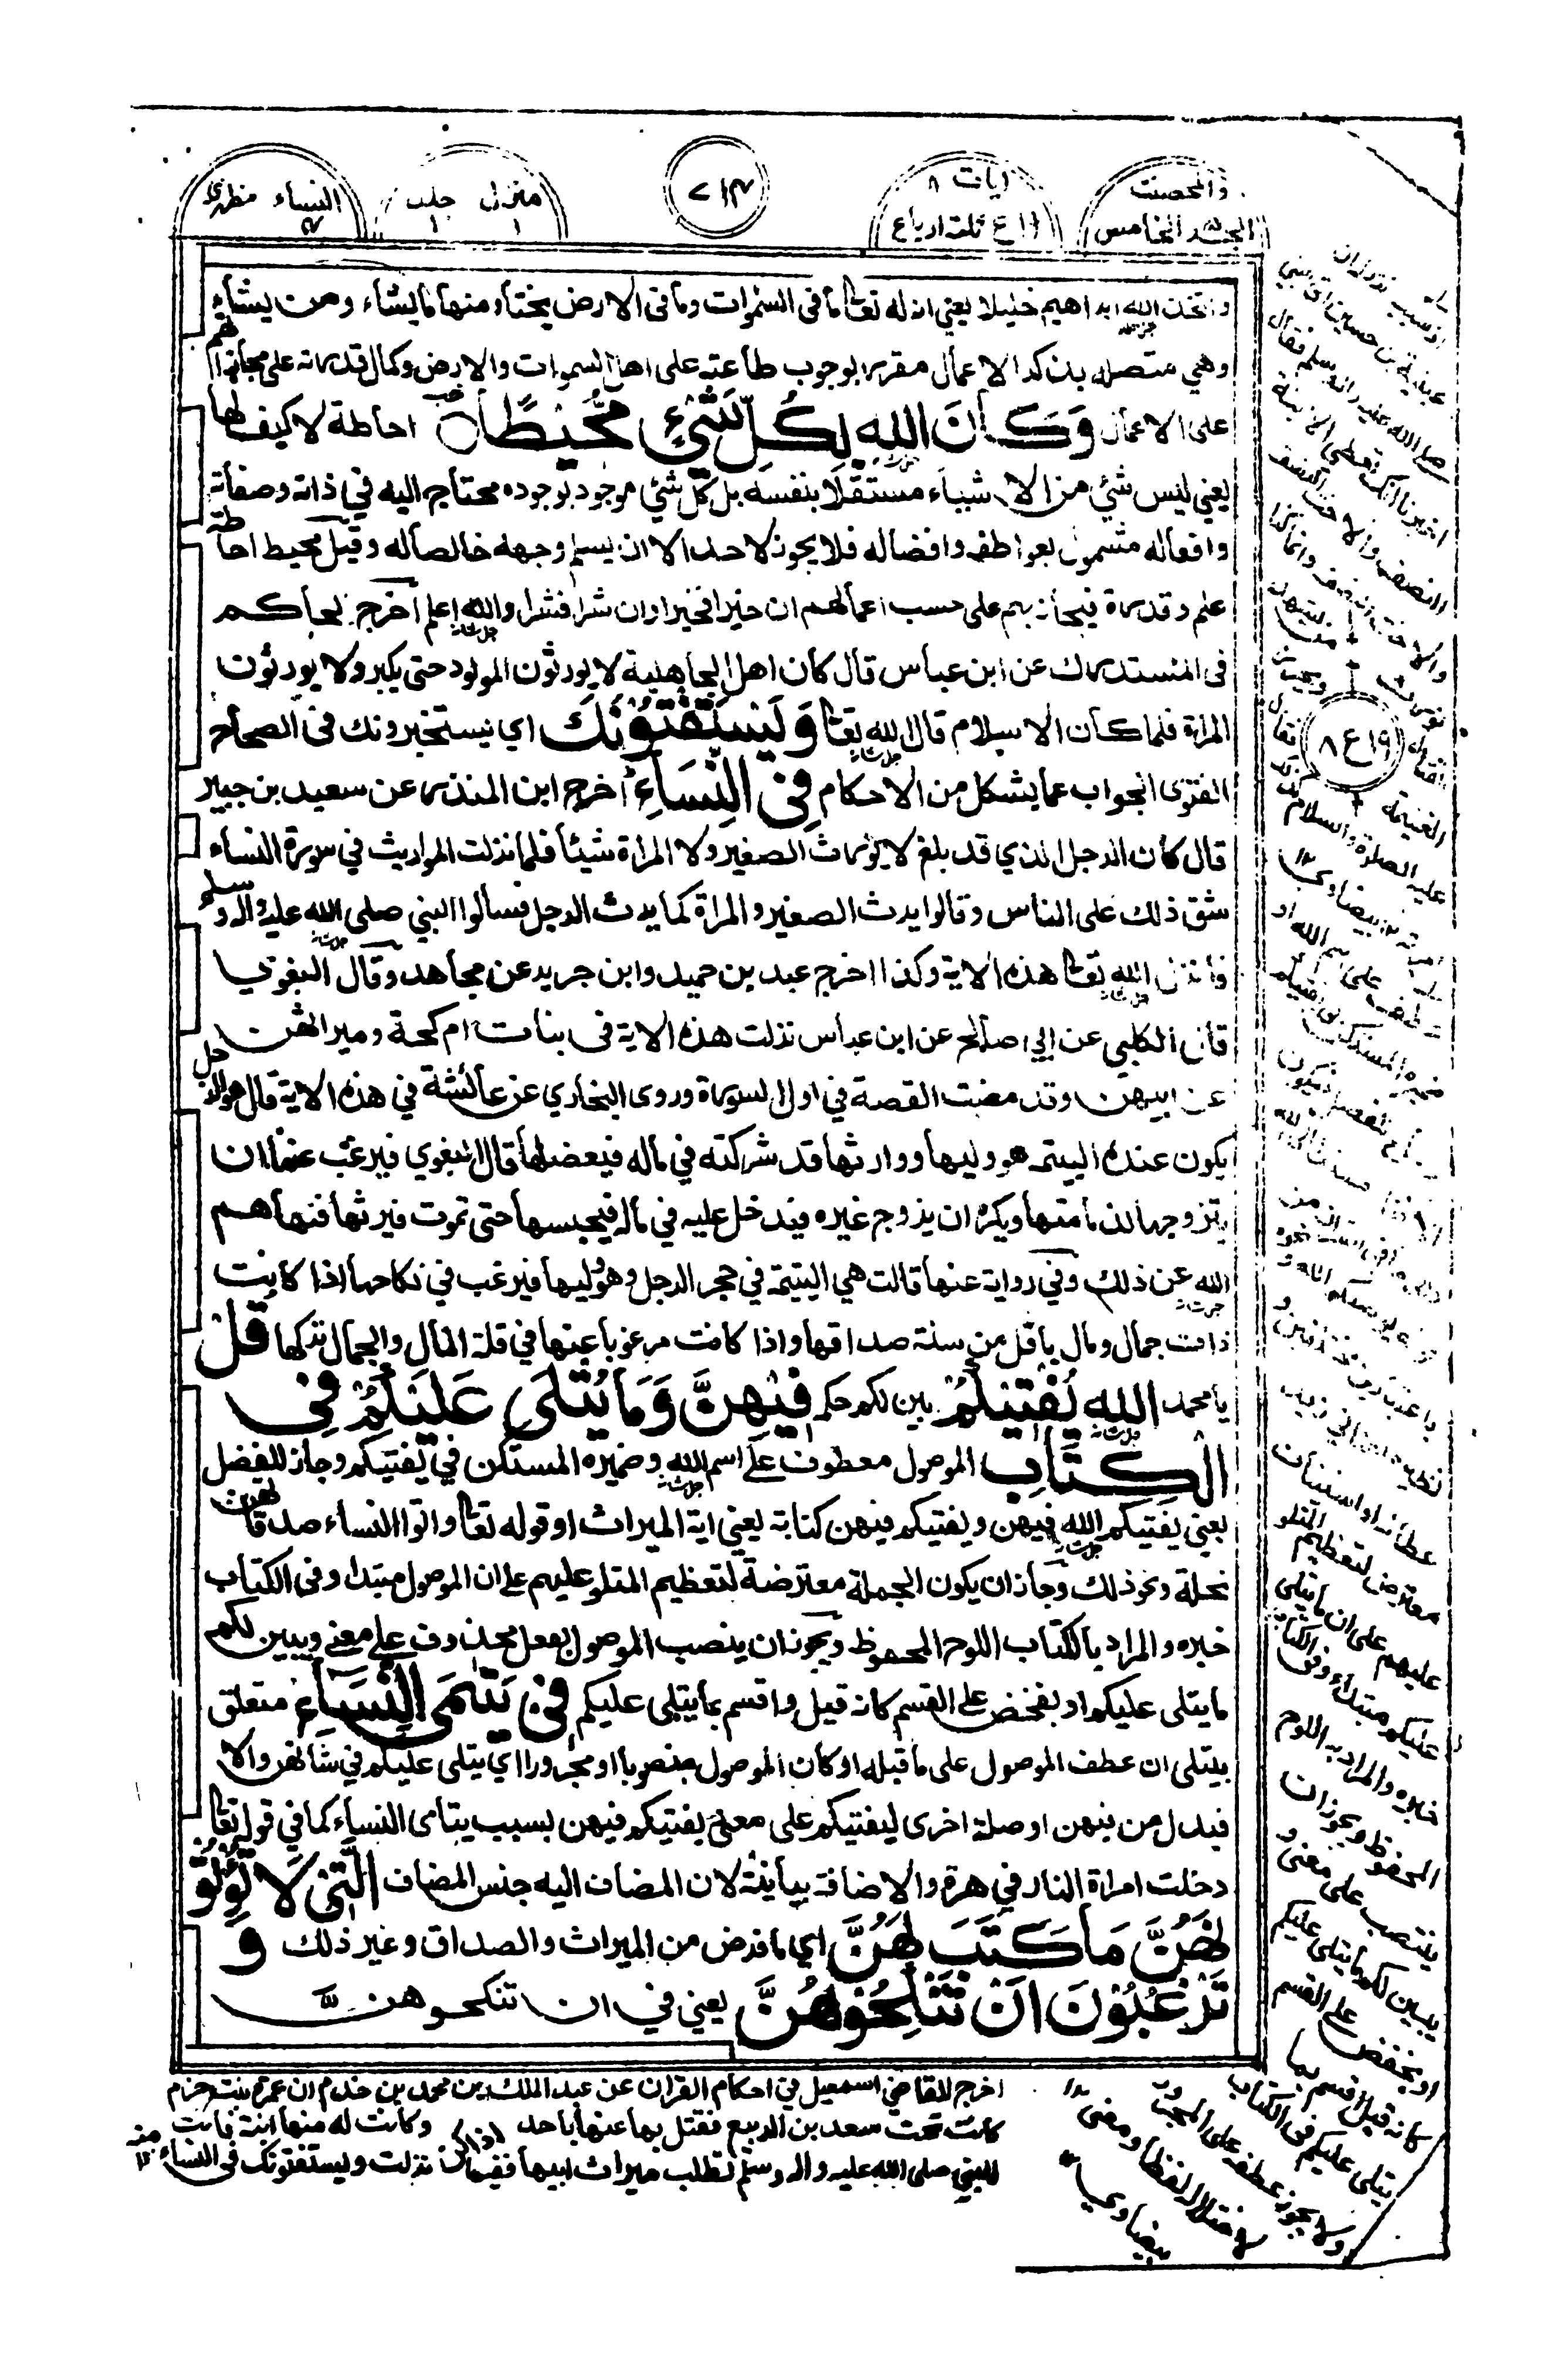 والمحصنت
الجزء الخامس
ايات ٨
١٩ ع ثلثة ارباع
٧١٣
منزل ١ جلد ١
النساء ٤ مظهري
واتخذ الله ابراهيم خليلا يعني ان له تعالى ما فى السموات وما فى الارض يختار منها ما يشاء ومن يشاء
وهي متصلة بذكر الاعمال مقرر لوجوب طاعته على اهل السموات والارض وكمال قدرته على مجازاتهم
على الاعمال وَكَانَ اللهُ بِكُلِّ شَيْءٍ مُّحِيْطًا احاطة لا كيف لها
يعني ليس شئ من الاشياء مستقلا بنفسه بل كل شئ موجود بوجوده محتاج اليه في ذاته وصفاته
وافعاله مشمول بعواطفه وافضاله فلا يجوز لاحد الا ان يسلم وجهه خالصا له وقيل محيط احاطة
علم وقدرة فيجازيهم على حسب اعمالهم ان خيرا فخيرا وان شرا فشرا والله اعلم اخرج الحاكم
فى المستدرك عن ابن عباس قال كان اهل الجاهلية لا يورثون المولود حتى يكبر ولا يورثون
المراة فلما كان الاسلام قال الله تعالى وَيَسْتَفْتُوْنَكَ اي يستخبرونك فى الصحاح
الفتوى الجواب عما يشكل من الاحكام فِى النِّسَاءِ اخرج ابن المنذر عن سعيد بن جبير
قال كان الرجل الذي قد بلغ لا يورث الصغير ولا المراة شيئا فلما نزلت المواريث في سورة النساء
شق ذلك على الناس وقالوا يرث الصغير والمراة كما يرث الرجل فسالوا النبي صلى الله عليه واله وسلم
فانزل الله تعالى هذه الاية وكذا اخرج عبد بن حميد وابن جرير عن مجاهد وقال البغوي
قال الكلبي عن ابي صالح عن ابن عباس نزلت هذه الاية فى بنات ام كحة وميراثهن
عن ابيهن وقد مضت القصة في اول السورة وروى البخاري عن عائشة في هذه الاية قال هو الرجل
يكون عنده اليتيمة هو وليها ووارثها قد شركته في ماله فيعضلها قال البغوي فيرغب عنها ان
يتزوجها لذمامتها ويكره ان يزوج غيره فيدخل عليه في ماله فيحبسها حتى تموت فيرثها فنهاهم
الله عن ذلك وفي رواية عنها قالت هي اليتيمة في حجر الرجل وهو وليها فيرغب في نكاحها اذا كانت
ذات جمال ومال باقل من سنة صداقها واذا كانت مرغوبا عنها في قلة المال والجمال تركها قُلِ
يا محمد اللهُ يُفْتِيْكُمْ يبين لكم حكم فِيْهِنَّ وَمَا يُتْلَى عَلَيْكُمْ فِى
الْكِتَابِ الموصول معطوف على اسم الله وضميره المستكن في يفتيكم وجاز للفصل
يعني يفتيكم الله فيهن ويفتيكم فيهن كتابه يعني اية الميراث او قوله تعالى واتوا النساء صدقاتهن
نحلة ونحو ذلك وجاز ان يكون الجملة معترضة لتعظيم المتلو عليهم على ان الموصول مبتدا وفى الكتاب
خبره والمراد بالكتاب اللوح المحفوظ ويجوز ان ينصب الموصول بفعل محذوف على معنى ويبين لكم
ما يتلى عليكم او يخفض على القسم كانه قيل واقسم بما يتلى عليكم فِى يَتٰمَى النِّسَاءِ متعلق
بيتلى ان عطف الموصول على ما قبله او كان الموصول منصوبا او مجرورا اي يتلى عليكم في شانهن والا
فبدل من فيهن او صلة اخرى ليفتيكم على معنى يفتيكم فيهن بسبب يتامى النساء كما في قوله تعالى
دخلت امراة النار في هرة والاضافة بيانية لان المضاف اليه جنس المضاف الّٰتِى لَا تُؤْتُوْ
نَهُنَّ مَا كُتِبَ لَهُنَّ اي ما فرض من الميراث والصداق وغير ذلك وَ
تَرْغَبُوْنَ اَنْ تَنْكِحُوْهُنَّ يعني في ان تنكحوهن
اخرج القاضي اسمعيل في احكام القران عن عبد الملك بن محمد بن حزم ان عمرة بنت حزم
كانت تحت سعد بن الربيع فقتل عنها باحد وكانت له منها ابنة فاتت
النبي صلى الله عليه واله وسلم تطلب ميراث ابيها ففيها نزلت ويستفتونك فى النساء منه ١٢
عيينة بن حصين اتى النبي
صلى الله عليه واله وسلم فقال
اخبرنا انك تعطى الابنة
النصف والاخت النصف
عليه الصلوة والسلام
١٩ ع ٨
معترض لتعظيم المتلو
عليهم على ان ما يتلى
عليكم مبتداء وفى الكتاب
خبره والمراد به اللوح
المحفوظ ويجوز ان
ينتصب على معنى و
يبين لكم ما يتلى عليكم
او يخفض على القسم
كانه قيل اقسم بما
يتلى عليكم فى الكتاب
ولا يجوز عطفه على المجرور
لاختلاله لفظا ومعنى ١٢
بيضاوي